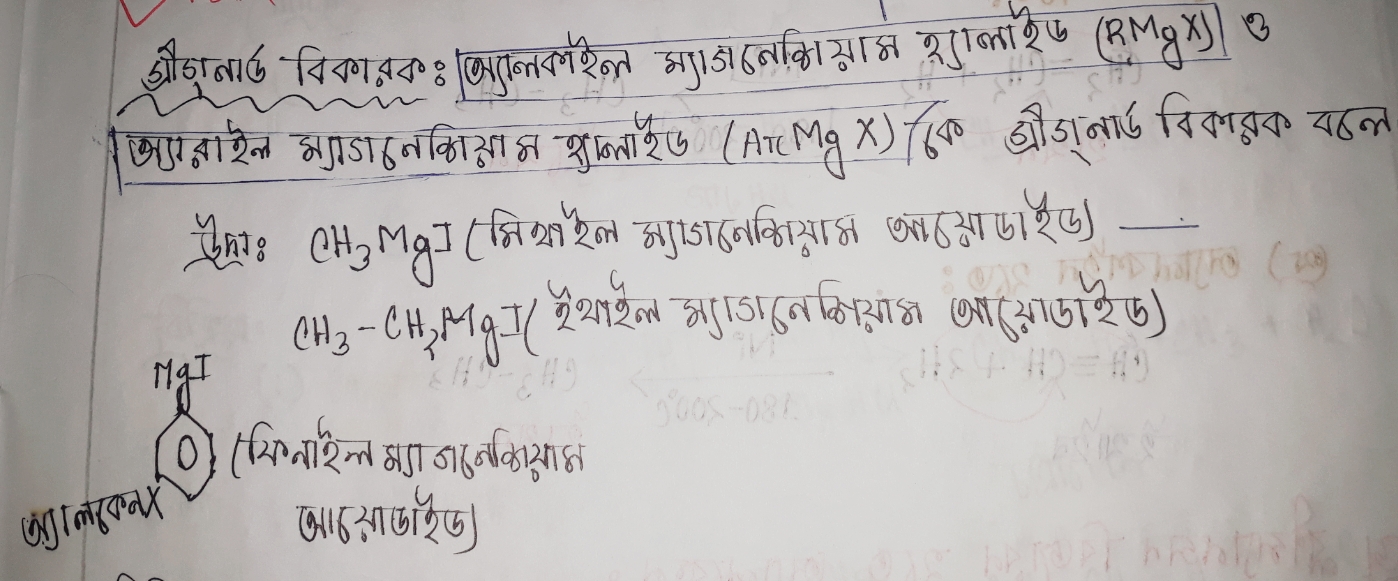 গ্রীগ্নার্ড বিকারক: অ্যালকাইল ম্যাগনেশিয়াম হ্যালাইড (RMgX) ও
অ্যারাইল ম্যাগনেশিয়াম হ্যালাইড (ArMgX) কে গ্রীগ্নার্ড বিকারক বলে
উদাঃ CH₃MgI (মিথাইল ম্যাগনেশিয়াম আয়োডাইড) —
CH₃-CH₂MgI (ইথাইল ম্যাগনেশিয়াম আয়োডাইড)
MgI
(ফিনাইল ম্যাগনেশিয়াম
অ্যালকেন X
আয়োডাইড)